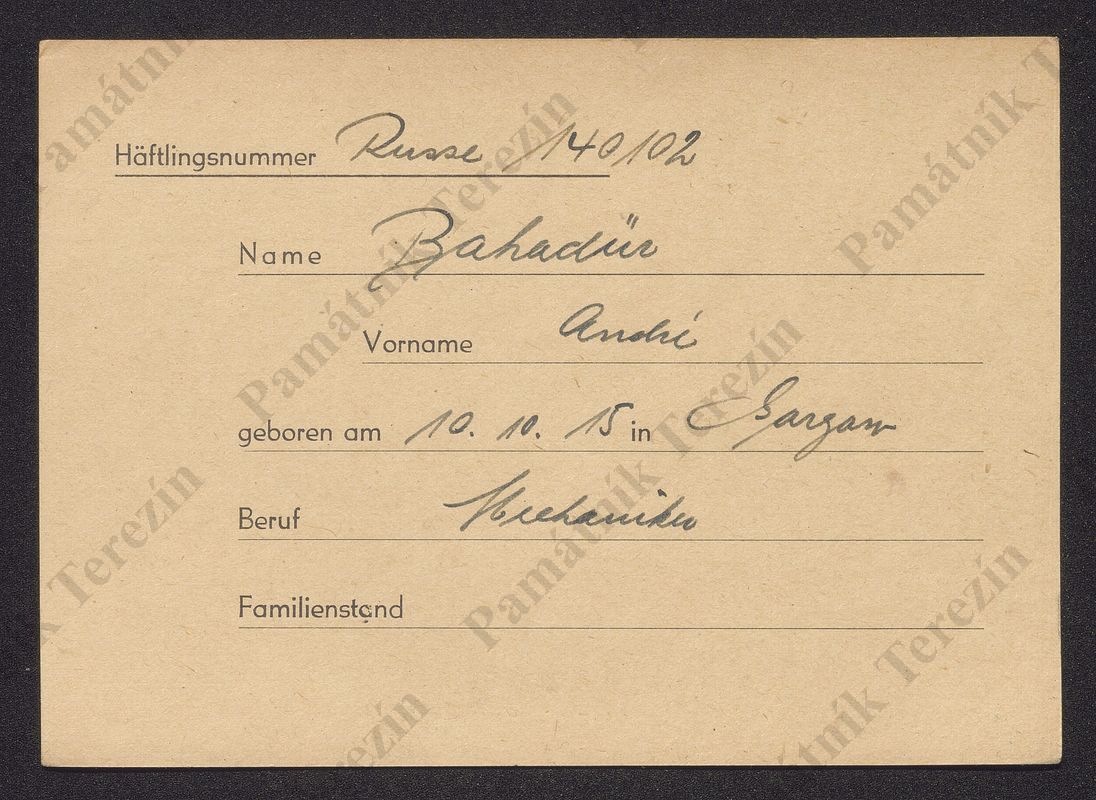 Häftlingsnummer Russe 140102
Name Bahadür
Vorname André
geboren am 10. 10. 15 in
Beruf Mechaniker
Familienstand
Památník Terezín